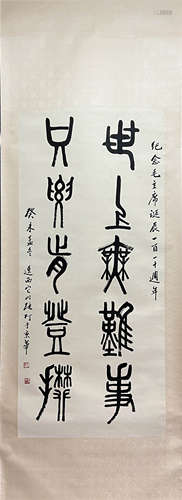 紀念毛主席誕辰一百一十週年
世上無難事
只要肯登攀
癸未孟冬 于京華